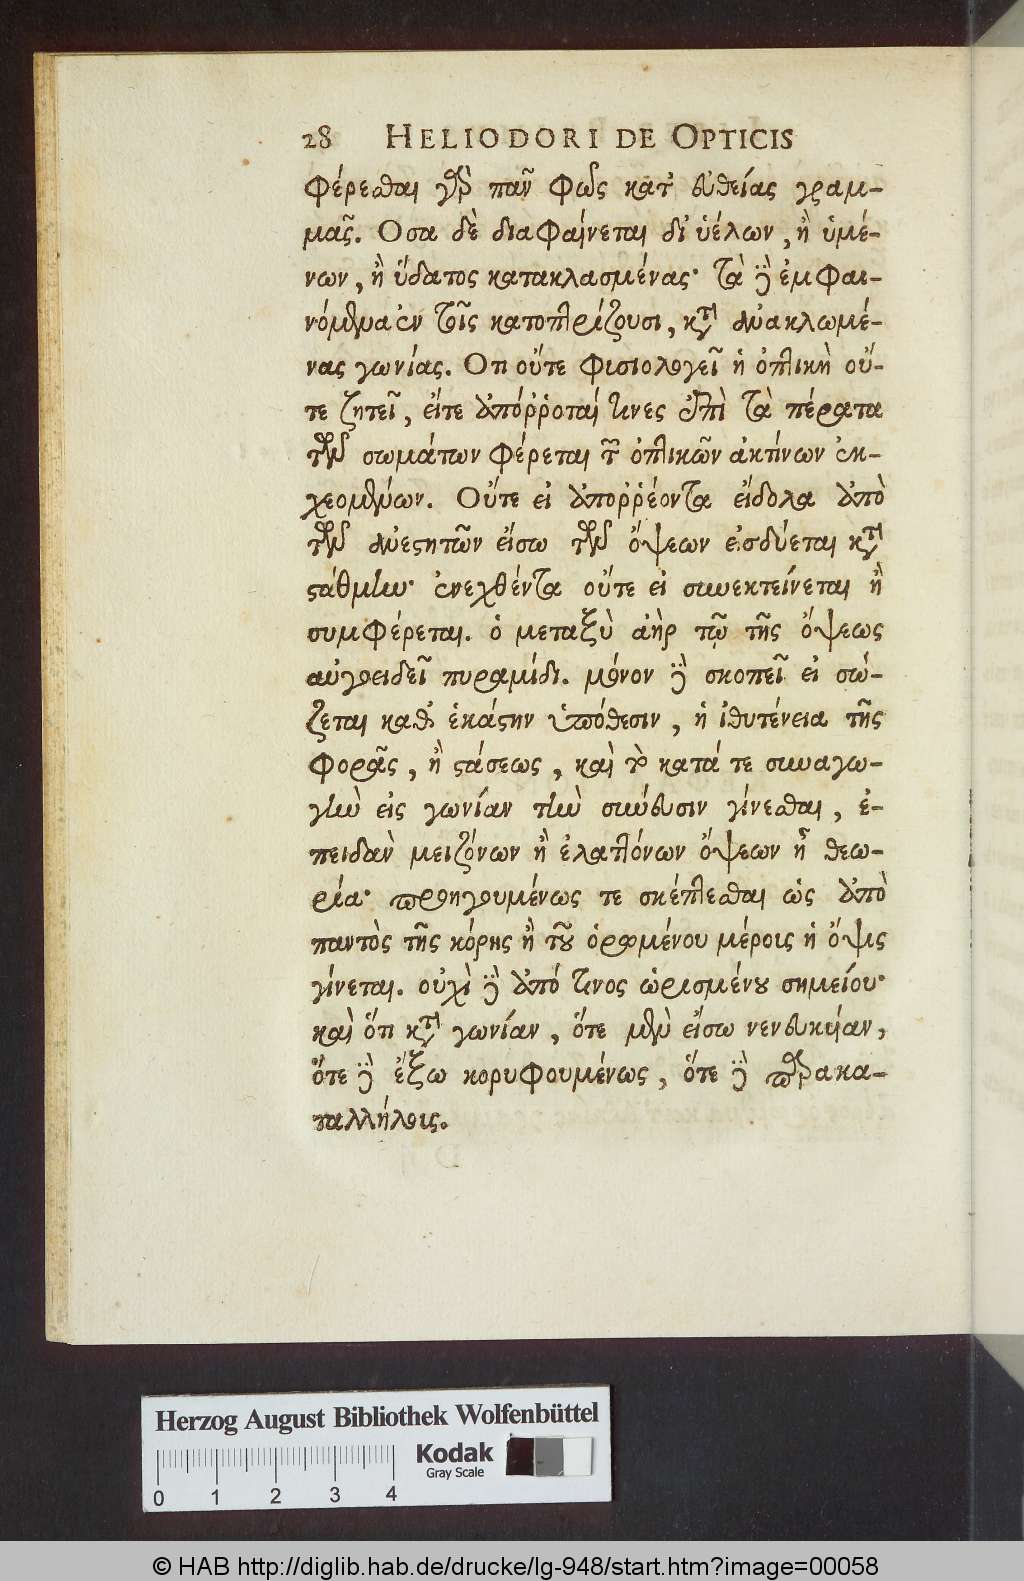 28 HELIODORI DE OPTICIS
Φέρεσθαι γὸ παν͂ φῶς κατ' εὐθείας γραμ-
μας͂. Οσα δὲ διαφαίνεται δι' ὑέλων, ἢ ὑμέ-
νων, ἢ ὕδατος κατακλασμένας· τὰ δὲ ἐμφαι-
νόμενα ἐν τοῖς κατοπτρίζουσι, κτ͂ ἀνακλωμέ-
νας γωνίας. Οτι οὔτε φισιολογεῖ ἡ ὀπτικὴ οὔ-
τε ζητεῖ, εἴτε ἀπόῤῥοιαί τινες ἐπὶ τὰ πέρατα
τῶν σωμάτων φέρεται τ͂ ὀπτικῶν ἀκτίνων ἐκ-
χεομένων. Οὔτε εἰ ἀποῤῥέοντα εἴδολα ἀπὸ
τῶν ἀνεστητῶν εἴσω τῶν ὄψεων εἰσδύεται κτ͂
στάθμην· ἐνεχθέντα οὔτε εἰ συνεκτείνεται ἢ
συμφέρεται. ὁ μεταξὺ ἀὴρ τῷ τῆς ὄψεως
αὐγοειδεῖ πυραμίδι. μόνον δὲ σκοπεῖ εἰ σώ-
ζεται καθ' ἑκάστην ὑπόθεσιν, ἡ ἰθυτένεια τῆς
φορᾶς, ἢ στάσεως, καὶ τὸ κατά τε συναγω-
γὴν εἰς γωνίαν τὴν σύνευσιν γίνεσθαι, ἐ-
πειδὰν μειζόνων ἢ ἐλαττόνων ὄψεων ᾖ θεω-
ρία· προηγουμένως τε σκέπτεσθαι ὡς ἀπὸ
παντὸς τῆς κόρης ἢ τοῦ ὁρωμένου μέροις ἡ ὄψις
γίνεται. οὐχὶ δὲ ἀπό τινος ὡρισμένου σημείου·
καὶ ὅτι κτ͂ γωνίαν, ὅτε μὲν εἴσω νενευκῆαν,
ὅτε δὲ ἔξω κορυφουμένως, ὅτε δὲ παρακα-
ταλλήλοις.
Herzog August Bibliothek Wolfenbüttel
Kodak
Gray Scale
0 1 2 3 4
© HAB http://diglib.hab.de/drucke/lg-948/start.htm?image=00058